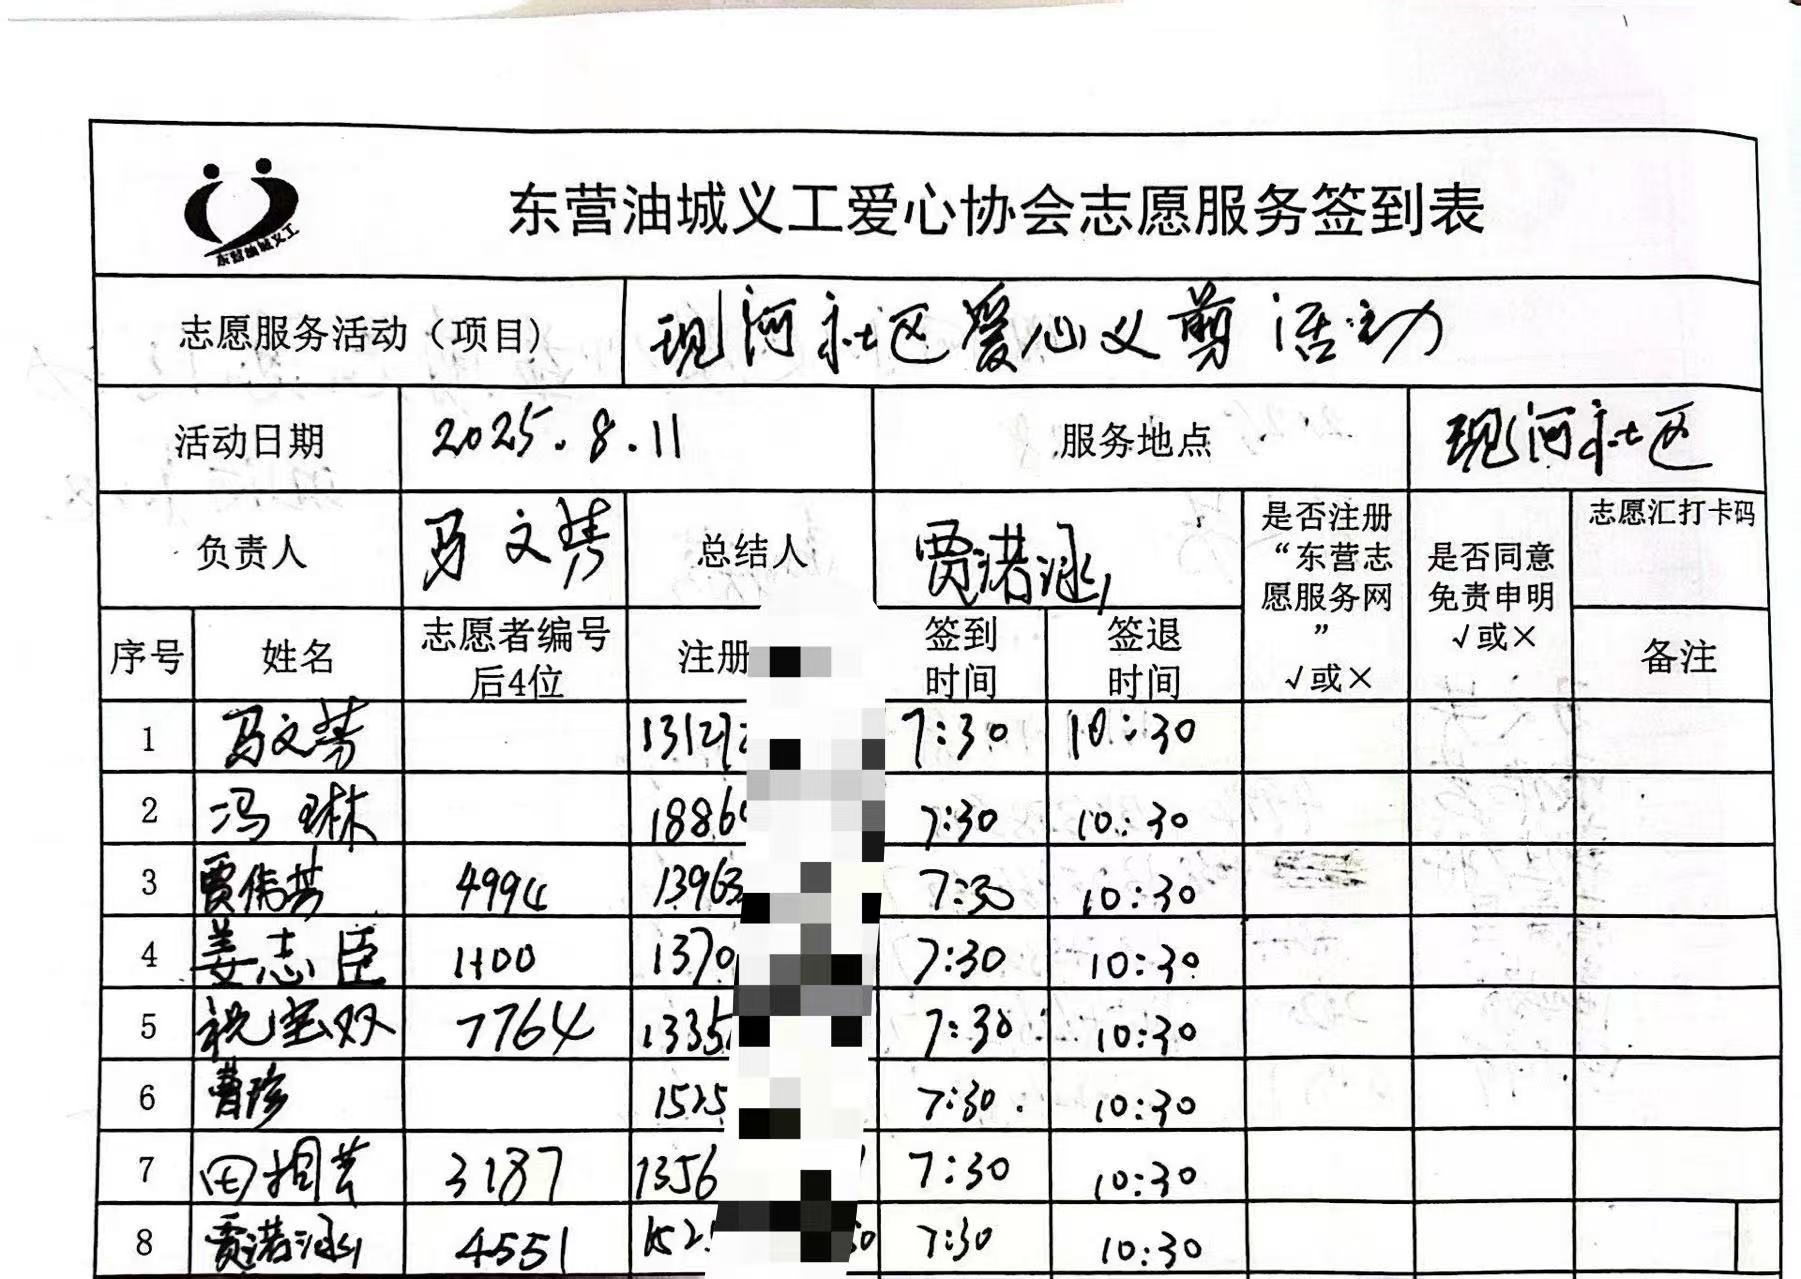 东营油城义工
东营油城义工爱心协会志愿服务签到表
志愿服务活动（项目） 现河社区爱心义剪活动
活动日期 2025.8.11 服务地点 现河社区
负责人 马文芳 总结人 贾诺涵 是否注册“东营志愿服务网”√或× 是否同意免责申明√或× 志愿汇打卡码
序号 姓名 志愿者编号后4位 注册 签到时间 签退时间 备注
1 马文芳 1312 7:30 10:30
2 冯琳 1886 7:30 10:30
3 贾伟芸 4994 13963 7:30 10:30
4 姜志臣 1100 1370 7:30 10:30
5 祝宝双 7764 1335 7:30 10:30
6 曹珍 1525 7:30 10:30
7 田相芸 3187 1356 7:30 10:30
8 贾诺涵 4551 152 7:30 10:30